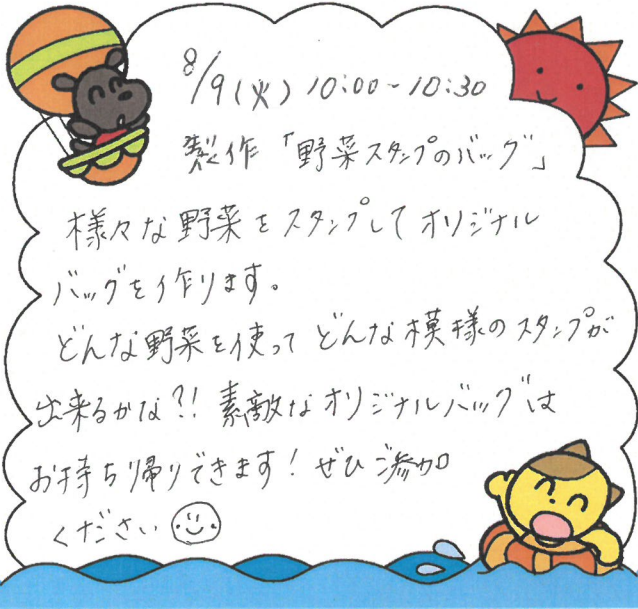 8/9(火) 10:00~10:30
製作「野菜スタンプのバッグ」
様々な野菜をスタンプしてオリジナル
バッグを作ります。
どんな野菜を使って どんな模様のスタンプが
出来るかな?! 素敵なオリジナルバッグは
お持ち帰りできます! ぜひご参加
ください